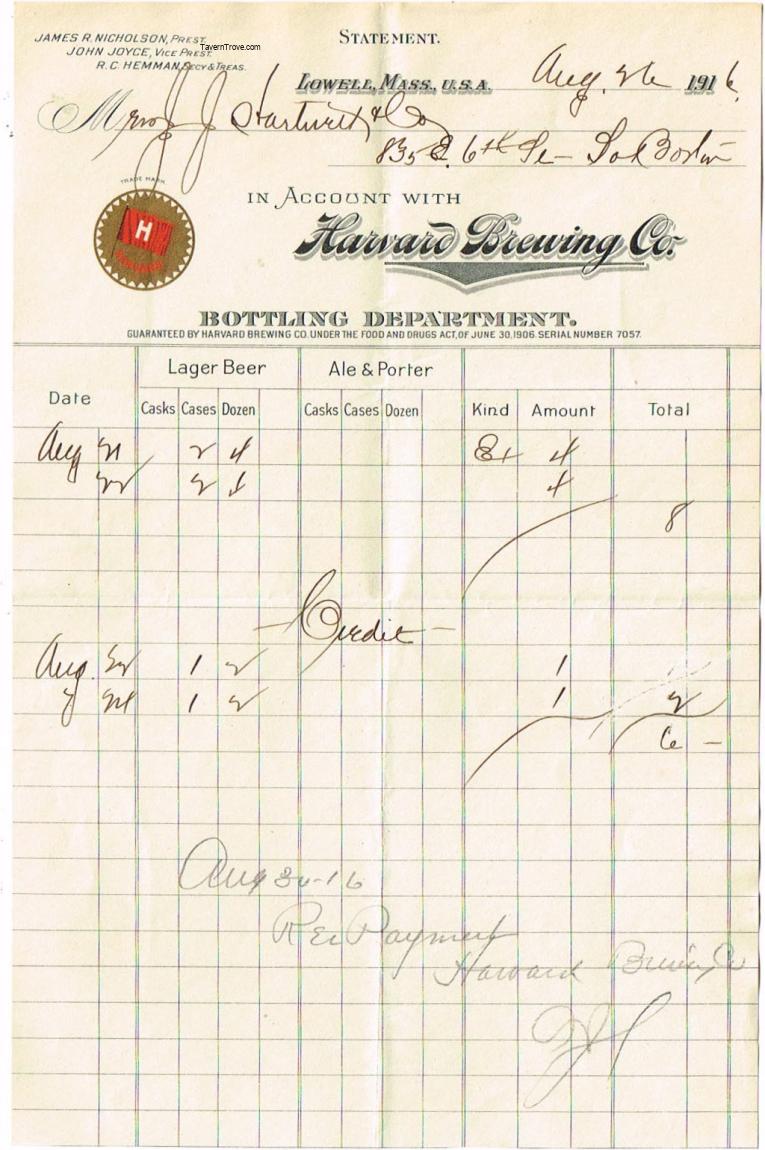 JAMES R. NICHOLSON, PREST.
JOHN JOYCE, VICE PREST.
R. C. HEMMAN, SECY & TREAS.
TavernTrove.com
STATEMENT.
LOWELL, MASS., U.S.A. Aug. 26 1916.
J J & Co
835 E. 6th So Boston
TRADE MARK
H
IN ACCOUNT WITH
Harvard Brewing Co.
BOTTLING DEPARTMENT.
GUARANTEED BY HARVARD BREWING CO. UNDER THE FOOD AND DRUGS ACT, OF JUNE 30, 1906. SERIAL NUMBER 7057.
Date Lager Beer Ale & Porter
Casks Cases Dozen Casks Cases Dozen Kind Amount Total
Aug 21 2 4 4
22 2 4 4
8
- Credit -
Aug. 1 2 1
24 1 2 1 2
6 -
Aug 30-16
Rec Payment
Harvard Brewing Co